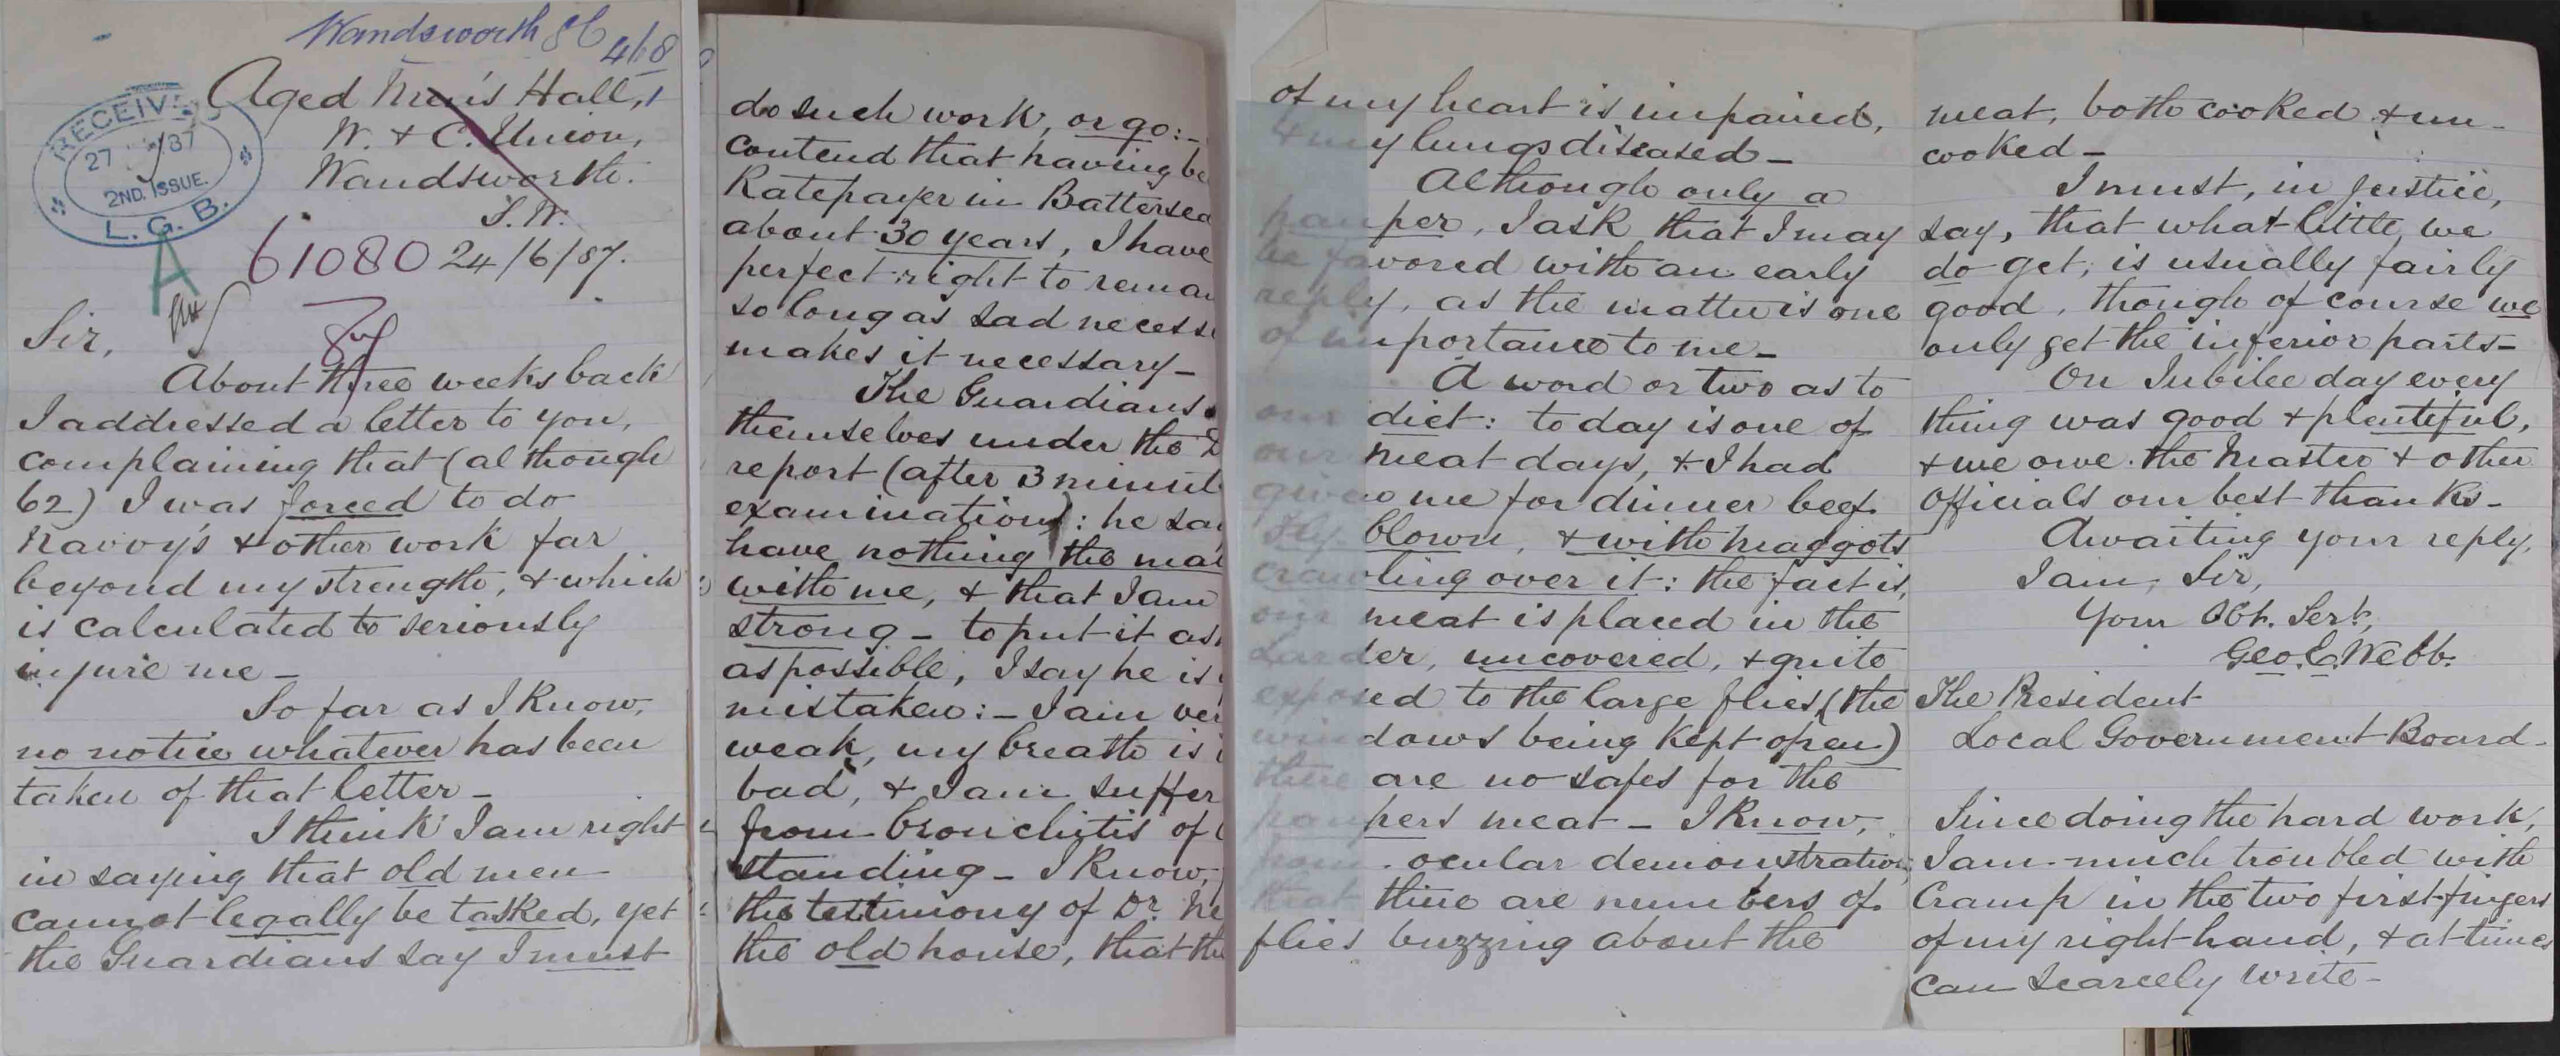 Wandsworth & C
468
Aged Men's Hall,
W. & C. Union,
Wandsworth.
S.W.
RECEIVED
27 87
2ND. ISSUE.
L. G. B.
A
61080 24/6/87.
Sir,
About three weeks back
I addressed a letter to you,
complaining that (although
62) I was forced to do
Navvy's & other work far
beyond my strength, & which
is calculated to seriously
injure me _
So far as I Know,
no notice whatever has been
taken of that letter _
I think I am right
in saying that old men
cannot legally be tasked, yet
the Guardians say I must
do such work, or go:-
contend that having be
Ratepayer in Battersea
about 30 years, I have
perfect right to remai
so long as sad necessi
makes it necessary _
The Guardians
themselves under the D
report (after 3 minut
examination): he sa
have nothing the mat
with me, & that I am
strong _ to put it as
as possible, I say he is
mistaken:- I am ver
weak, my breath is
bad, & I am suffer
from bronchitis of
standing _ I Know,
the testimony of Dr. Ne
the old house, that the
of my heart is impaired,
& my lungs diseased _
Although only a
pauper, I ask that I may
be favored with an early
reply, as the matter is one
of importance to me _
A word or two as to
our diet: to day is one of
our meat days, & I had
given me for dinner beef
fly blown, & with maggots
crawling over it: the fact is,
our meat is placed in the
Larder, uncovered, & quite
exposed to the large flies, (the
windows being Kept open)
there are no safes for the
paupers meat _ I Know,
from ocular demonstration,
that there are numbers of
flies buzzing about the
meat, both cooked & un-
cooked _
I must, in justice,
say, that what little, we
do get, is usually fairly
good, though of course we
only get the inferior parts _
On Jubilee day every
thing was good & plentiful,
& we owe the Master & other
Officials our best thanks _
Awaiting your reply,
I am, Sir,
Your Obt. Servt,
Geo. C. Webb.
The President
Local Government Board.
Since doing the hard work,
I am much troubled with
Cramp in the two first fingers
of my right hand, & at times
can scarcely write _